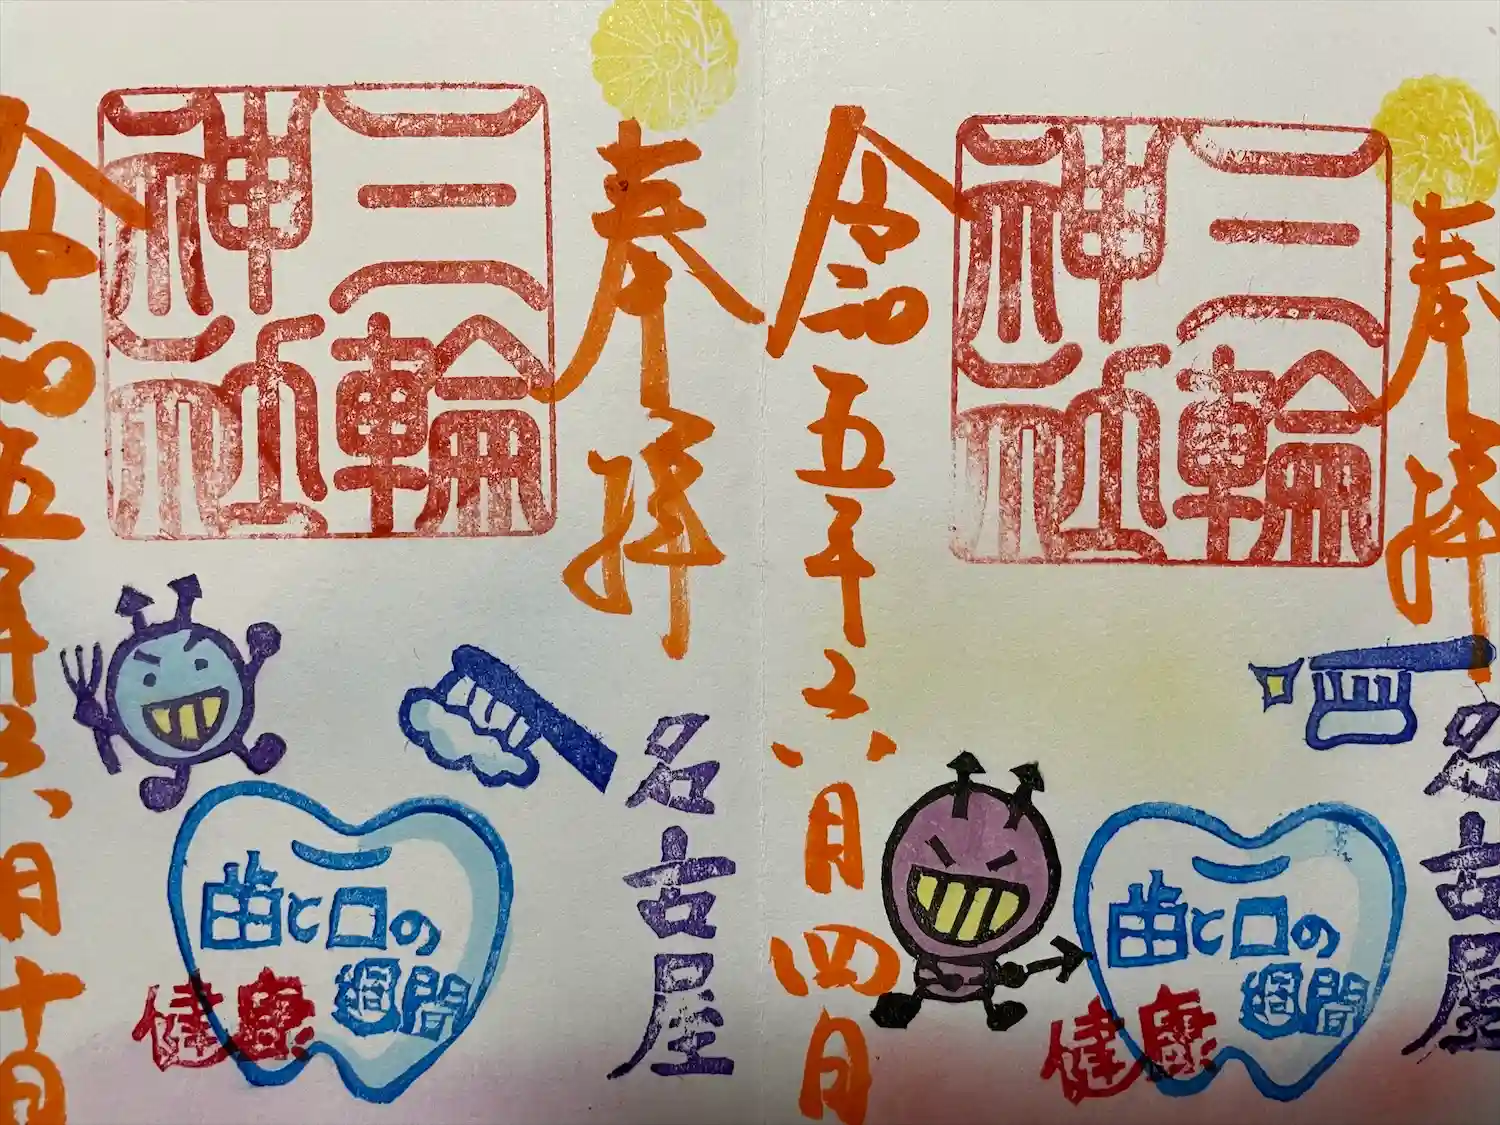 奉拝
三輪
神社
名古屋
歯と口の
健康週間
令和五年六月四日
奉拝
三輪
神社
名古屋
歯と口の
健康週間
令和五年六月十日